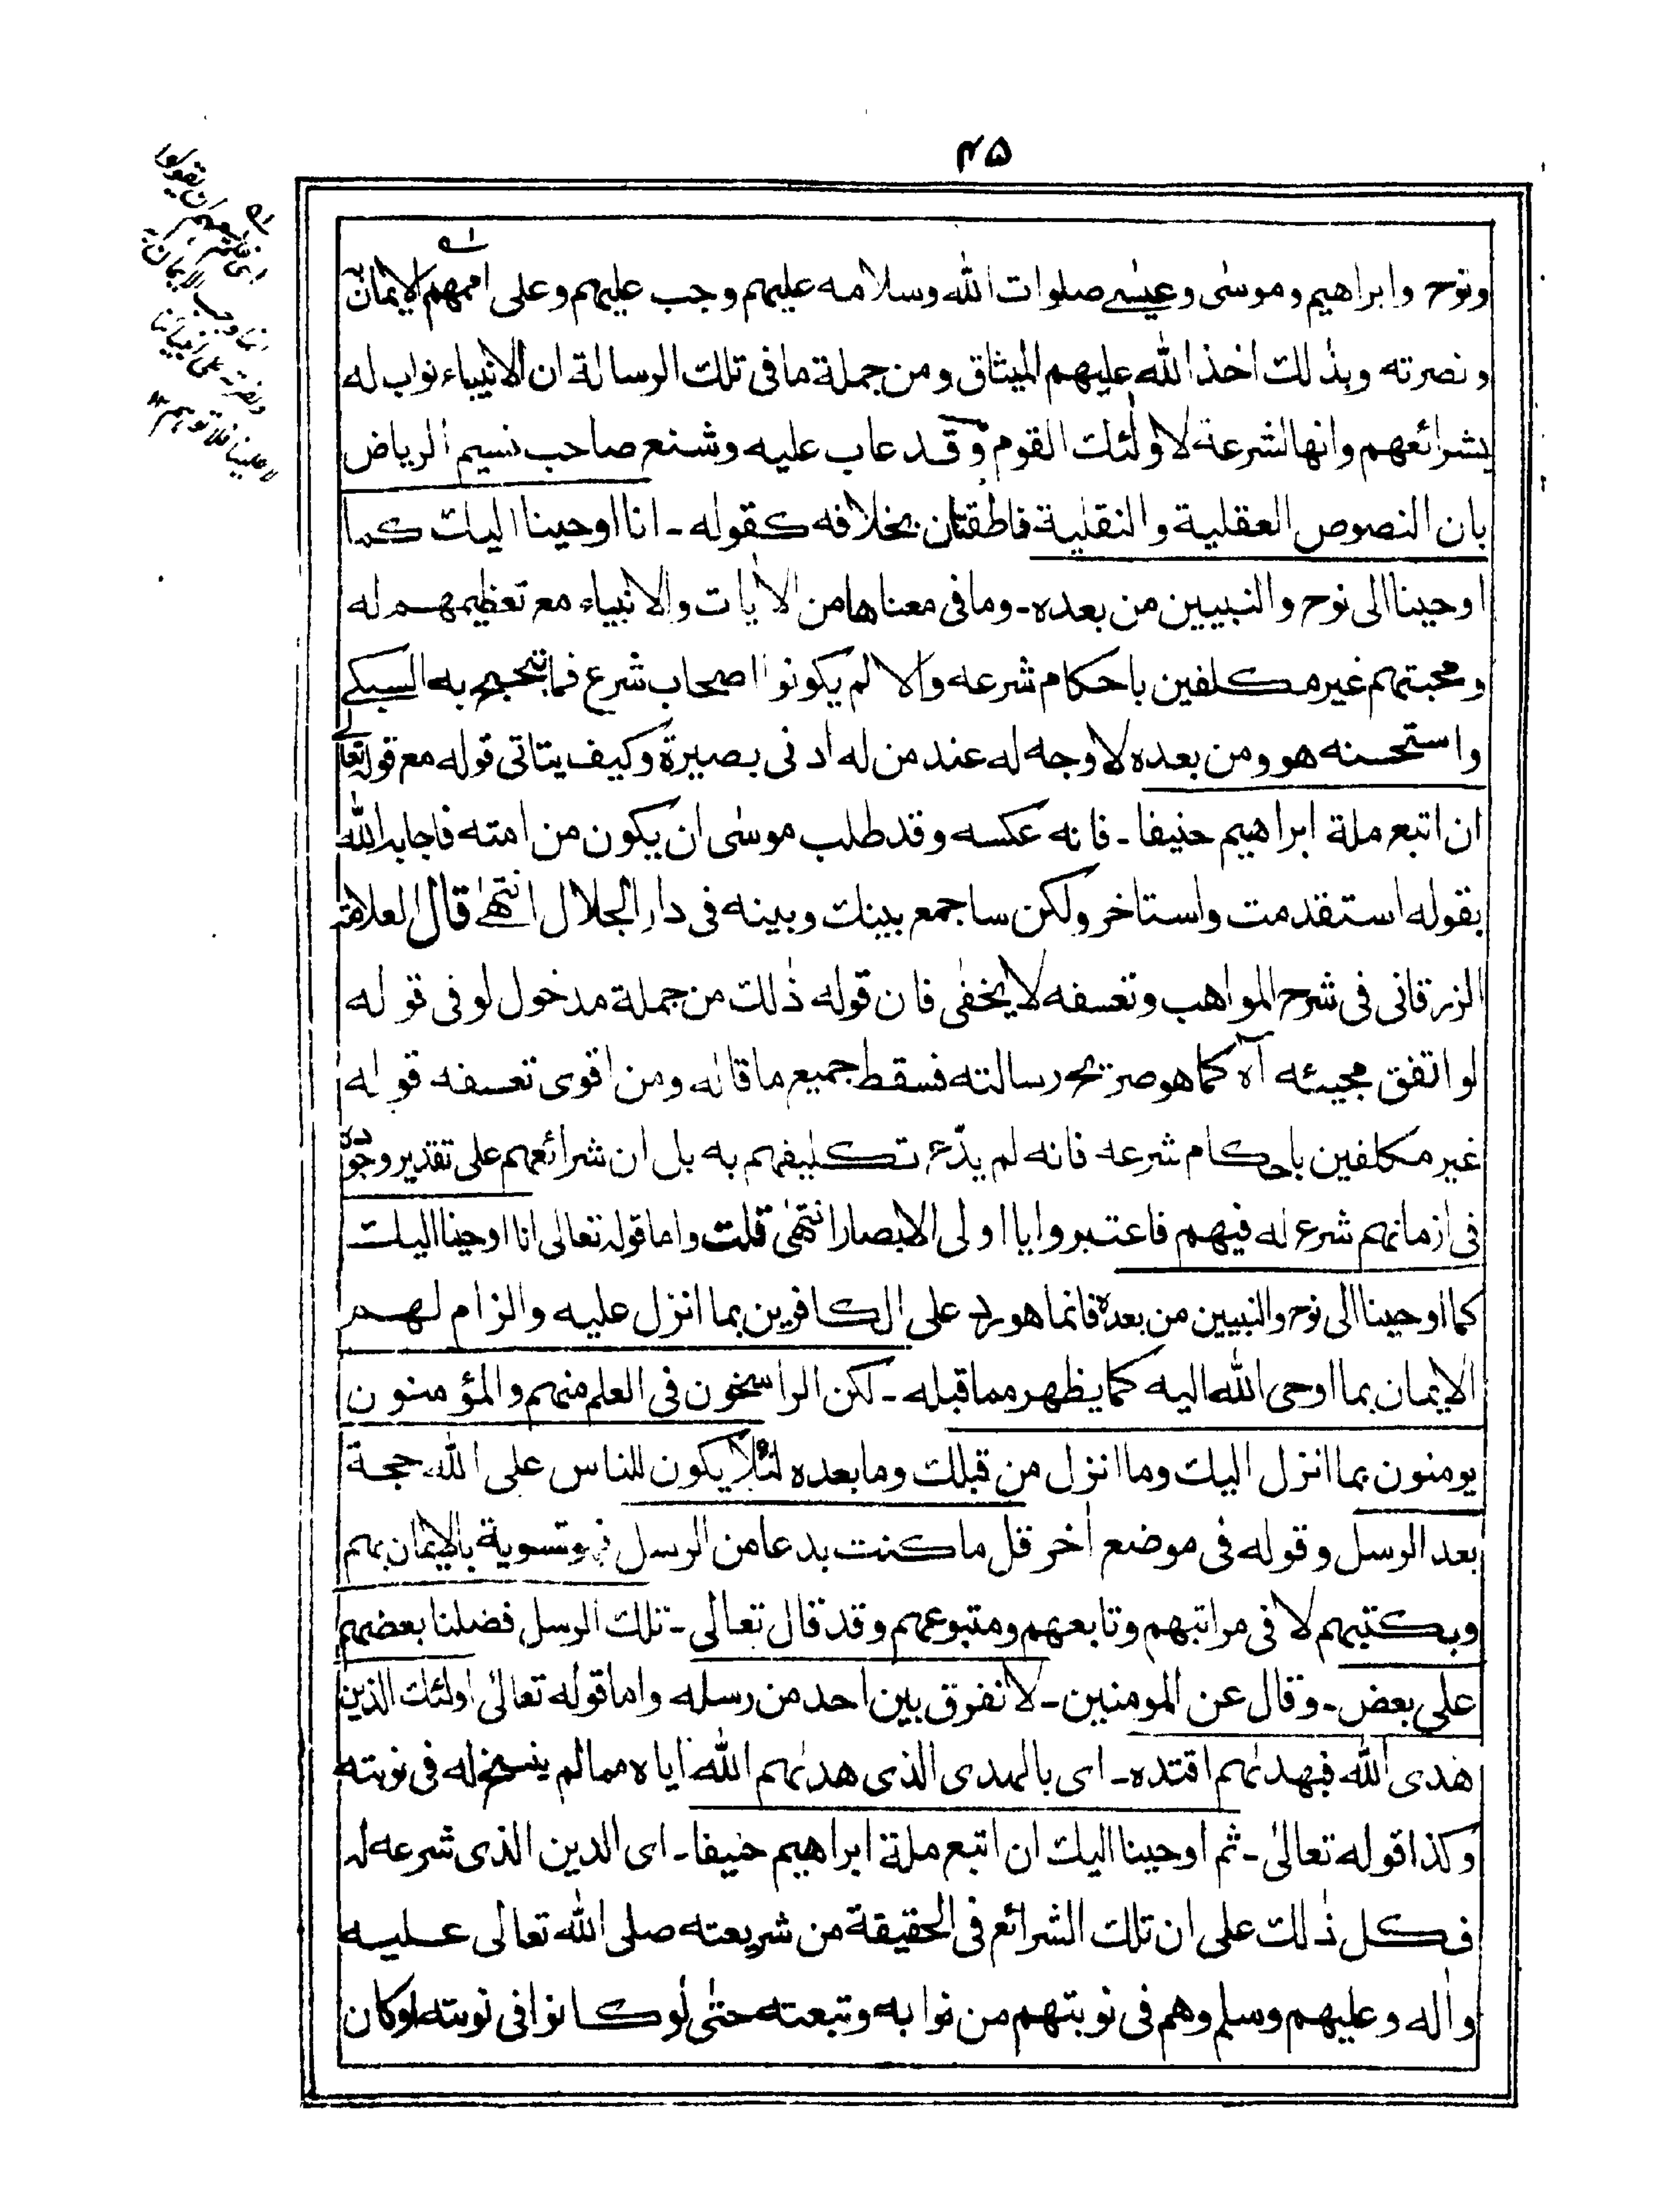 ٤٥
ونوح وابراهيم وموسى وعيسى صلوات الله وسلامه عليهم وجب عليهم وعلى اممهم الايمان به
ونصرته وبذلك اخذ الله عليهم الميثاق ومن جملة ما فى تلك الرسالة ان الانبياء نواب له
بشرائعهم وانها لشرعة لاولئك القوم وقد عاب عليه وشنع صاحب نسيم الرياض
بان النصوص العقلية والنقلية ناطقتان بخلافه كقوله - انا اوحينا اليك كما
اوحينا الى نوح والنبيين من بعده - وما فى معناها من الاٰيات والانبياء مع تعظيمهم له
ومحبتهم غير مكلفين باحكام شرعه والا لم يكونوا اصحاب شرع فما تبجح به السبكى
واستحسنه هو ومن بعده لا وجه له عند من له ادنى بصيرة وكيف يتاتى قوله مع قوله تعالى
ان اتبع ملة ابراهيم حنيفا - فانه عكسه وقد طلب موسى ان يكون من امته فاجابه الله
بقوله استقدمت واستاخر ولكن ساجمع بينك وبينه فى دار الجلال انتهى قال العلامة
الزرقانى فى شرح المواهب وتعسفه لا يخفى فان قوله ذٰلك من جملة مدخول لو فى قوله
لو اتفق مجيئه آه كما هو صريح رسالته فسقط جميع ما قاله ومن اقوى تعسفه قوله
غير مكلفين باحكام شرعه فانه لم يدّع تكليفهم به بل ان شرائعهم على تقدير وجوده
فى ازمانهم شرع له فيهم فاعتبروا يا اولى الابصار انتهىٰ قلت واما قوله تعالى انا اوحينا اليك
كما اوحينا الى نوح والنبيين من بعده فانما هو رد على الكافرين بما انزل عليه والزام لهم
الايمان بما اوحى الله اليه كما يظهر مما قبله - لكن الراسخون فى العلم منهم والمؤمنون
يومنون بما انزل اليك وما انزل من قبلك وما بعده لئلا يكون للناس على الله حجة
بعد الرسل وقوله فى موضع اٰخر قل ما كنت بدعا من الرسل فهو تسوية بالايمان بهم
وبكتبهم لا فى مراتبهم وتابعهم ومتبوعهم وقد قال تعالى - تلك الرسل فضلنا بعضهم
على بعض - وقال عن المومنين - لا نفرق بين احد من رسله واما قوله تعالىٰ اولئك الذين
هدى الله فبهدٰىهم اقتده - اى بالهدى الذى هدٰىهم الله اياه مما لم ينسخ له فى نوبته
وكذا قوله تعالىٰ - ثم اوحينا اليك ان اتبع ملة ابراهيم حنيفا - اى الدين الذى شرعه له
فكل ذٰلك على ان تلك الشرائع فى الحقيقة من شريعته صلى الله تعالى عليه
واٰله وعليهم وسلم وهم فى نوبتهم من نوابه وتبعته حتىٰ لو كانوا فى نوبته او كان